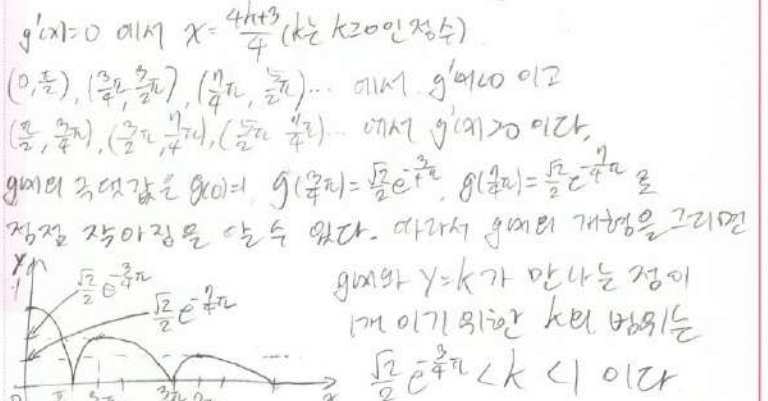 g'(x)=0 에서 x=(4k+3)/4 (k는 k≥0인 정수)
(0,π/2), (3/4π, 3/2π), (7/4π, 5/2π)... 에서 g'(x)<0 이고
(π/2, 3/4π), (3/2π, 7/4π), (5/2π, 11/4π)... 에서 g'(x)>0 이다.
g(x)의 극댓값은 g(0)=1, g(3/4π)=√2/2 e^(-3/4π), g(7/4π)=√2/2 e^(-7/4π) 로
점점 작아짐을 알 수 있다. 따라서 g(x)의 개형을 그리면
y
1
√2/2 e^(-3/4π)
√2/2 e^(-7/4π)
0
x
g(x)와 y=k가 만나는 점이
1개 이기 위한 k의 범위는
√2/2 e^(-3/4π) < k < 1 이다